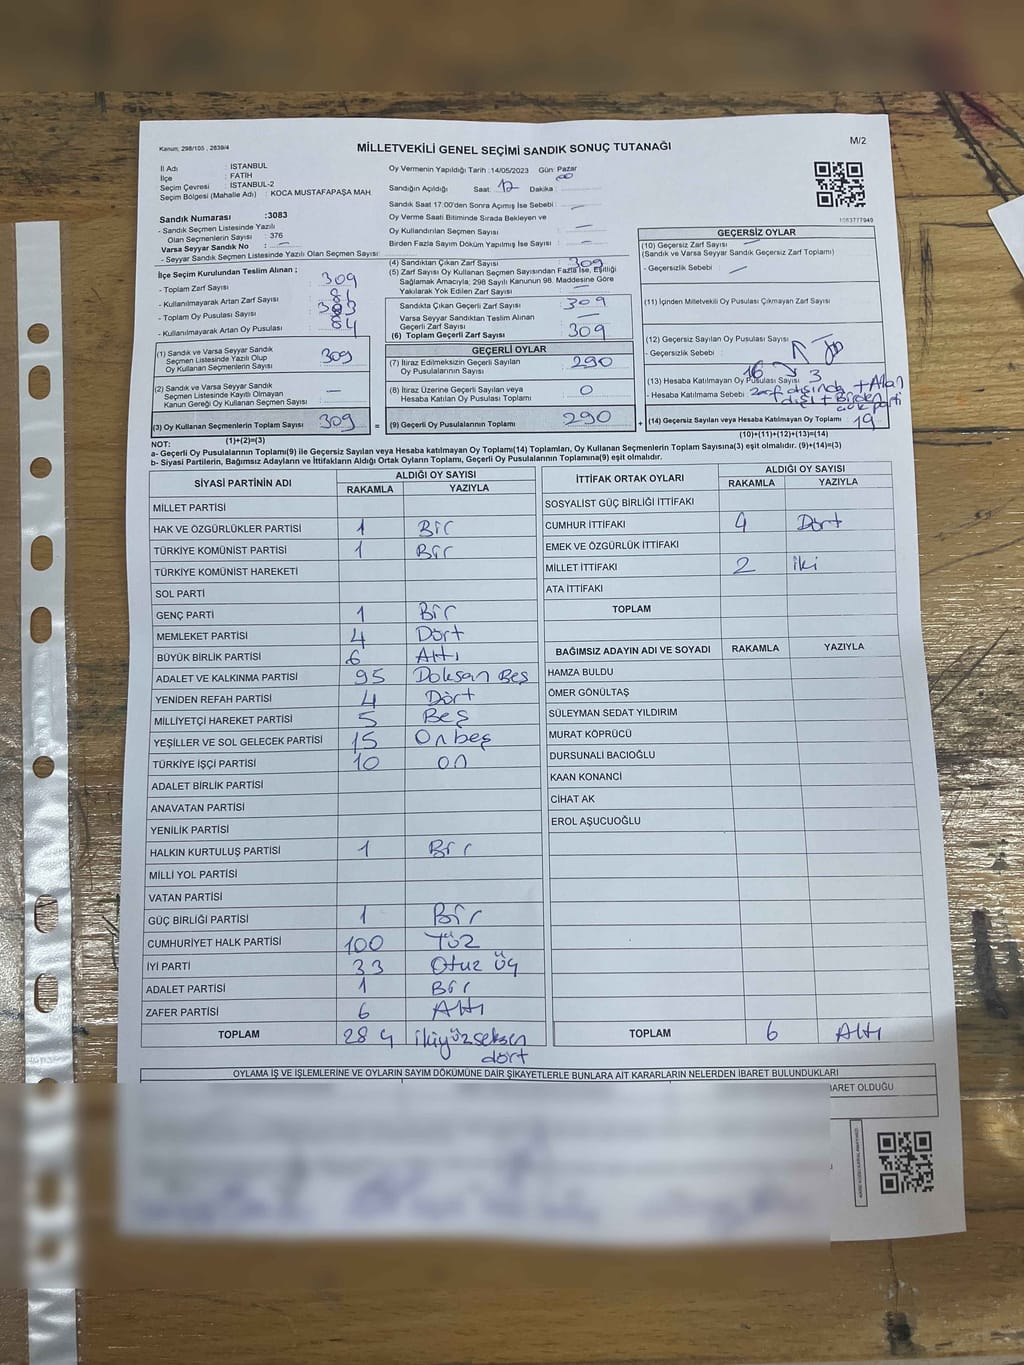 Kanun; 298/105 , 2839/4
MİLLETVEKİLİ GENEL SEÇİMİ SANDIK SONUÇ TUTANAĞI
M/2
İl Adı : İSTANBUL
İlçe : FATİH
Seçim Çevresi : İSTANBUL-2
Seçim Bölgesi (Mahalle Adı) : KOCA MUSTAFAPAŞA MAH.
Sandık Numarası :3083
- Sandık Seçmen Listesinde Yazılı
Olan Seçmenlerin Sayısı : 376
Varsa Seyyar Sandık No : —
- Seyyar Sandık Seçmen Listesinde Yazılı Olan Seçmen Sayısı:
Oy Vermenin Yapıldığı Tarih :14/05/2023 Gün: Pazar
Sandığın Açıldığı Saat: 17 Dakika : 00
Sandık Saat 17:00'den Sonra Açımış İse Sebebi : —
Oy Verme Saati Bitiminde Sırada Bekleyen ve
Oy Kullandırılan Seçmen Sayısı : —
Birden Fazla Sayım Döküm Yapılmış İse Sayısı : —
1083777949
İlçe Seçim Kurulundan Teslim Alınan ;
- Toplam Zarf Sayısı : 309
- Kullanılmayarak Artan Zarf Sayısı : 81
- Toplam Oy Pusulası Sayısı :
- Kullanılmayarak Artan Oy Pusulası : 84
(1) Sandık ve Varsa Seyyar Sandık
Seçmen Listesinde Yazılı Olup
Oy Kullanan Seçmenlerin Sayısı : 309
(2) Sandık ve Varsa Seyyar Sandık
Seçmen Listesinde Kayıtlı Olmayan
Kanun Gereği Oy Kullanan Seçmen Sayısı : —
(3) Oy Kullanan Seçmenlerin Toplam Sayısı : 309 =
(4) Sandıktan Çıkan Zarf Sayısı : 309
(5) Zarf Sayısı Oy Kullanan Seçmen Sayısından Fazla İse, Eşitliği
Sağlamak Amacıyla; 298 Sayılı Kanunun 98. Maddesine Göre
Yakılarak Yok Edilen Zarf Sayısı : —
Sandıkta Çıkan Geçerli Zarf Sayısı : 309
Varsa Seyyar Sandıktan Teslim Alınan
Geçerli Zarf Sayısı : —
(6) Toplam Geçerli Zarf Sayısı : 309
GEÇERLİ OYLAR
(7) İtiraz Edilmeksizin Geçerli Sayılan
Oy Pusulalarının Sayısı : 290
(8) İtiraz Üzerine Geçerli Sayılan veya
Hesaba Katılan Oy Pusulası Toplamı : 0
(9) Geçerli Oy Pusulalarının Toplamı : 290 +
GEÇERSİZ OYLAR
(10) Geçersiz Zarf Sayısı : —
(Sandık ve Varsa Seyyar Sandık Geçersiz Zarf Toplamı)
- Geçersizlik Sebebi : —
(11) İçinden Milletvekili Oy Pusulası Çıkmayan Zarf Sayısı
(12) Geçersiz Sayılan Oy Pusulası Sayısı :
- Geçersizlik Sebebi :
16 3
(13) Hesaba Katılmayan Oy Pusulası Sayısı :
- Hesaba Katılmama Sebebi : zarf dışında + Alan
dışı + Birden
çok parti
(14) Geçersiz Sayılan veya Hesaba Katılmayan Oy Toplamı : 19
NOT:
(1)+(2)=(3)
(10)+(11)+(12)+(13)=(14)
a- Geçerli Oy Pusulalarının Toplamı(9) ile Geçersiz Sayılan veya Hesaba katılmayan Oy Toplamı(14) Toplamları, Oy Kullanan Seçmenlerin Toplam Sayısına(3) eşit olmalıdır. (9)+(14)=(3)
b- Siyasi Partilerin, Bağımsız Adayların ve İttifakların Aldığı Ortak Oyların Toplamı, Geçerli Oy Pusulalarının Toplamına(9) eşit olmalıdır.
SİYASİ PARTİNİN ADI
ALDIĞI OY SAYISI
RAKAMLA YAZIYLA
MİLLET PARTİSİ
HAK VE ÖZGÜRLÜKLER PARTİSİ 1 Bir
TÜRKİYE KOMÜNİST PARTİSİ 1 Bir
TÜRKİYE KOMÜNİST HAREKETİ
SOL PARTİ
GENÇ PARTİ 1 Bir
MEMLEKET PARTİSİ 4 Dört
BÜYÜK BİRLİK PARTİSİ 6 Altı
ADALET VE KALKINMA PARTİSİ 95 Doksan Beş
YENİDEN REFAH PARTİSİ 4 Dört
MİLLİYETÇİ HAREKET PARTİSİ 5 Beş
YEŞİLLER VE SOL GELECEK PARTİSİ 15 Onbeş
TÜRKİYE İŞÇİ PARTİSİ 10 on
ADALET BİRLİK PARTİSİ
ANAVATAN PARTİSİ
YENİLİK PARTİSİ
HALKIN KURTULUŞ PARTİSİ 1 Bir
MİLLİ YOL PARTİSİ
VATAN PARTİSİ
GÜÇ BİRLİĞİ PARTİSİ 1 Bir
CUMHURİYET HALK PARTİSİ 100 Yüz
İYİ PARTİ 33 Otuz üç
ADALET PARTİSİ 1 Bir
ZAFER PARTİSİ 6 Altı
TOPLAM 284 ikiyüzseksen
dört
İTTİFAK ORTAK OYLARI
ALDIĞI OY SAYISI
RAKAMLA YAZIYLA
SOSYALİST GÜÇ BİRLİĞİ İTTİFAKI
CUMHUR İTTİFAKI 4 Dört
EMEK VE ÖZGÜRLÜK İTTİFAKI
MİLLET İTTİFAKI 2 iki
ATA İTTİFAKI
TOPLAM
BAĞIMSIZ ADAYIN ADI VE SOYADI RAKAMLA YAZIYLA
HAMZA BULDU
ÖMER GÖNÜLTAŞ
SÜLEYMAN SEDAT YILDIRIM
MURAT KÖPRÜCÜ
DURSUNALİ BACIOĞLU
KAAN KONANCİ
CİHAT AK
EROL AŞUCUOĞLU
TOPLAM 6 Altı
OYLAMA İŞ VE İŞLEMLERİNE VE OYLARIN SAYIM DÖKÜMÜNE DAİR ŞİKAYETLERLE BUNLARA AİT KARARLARIN NELERDEN İBARET BULUNDUKLARI
BARET OLDUĞU